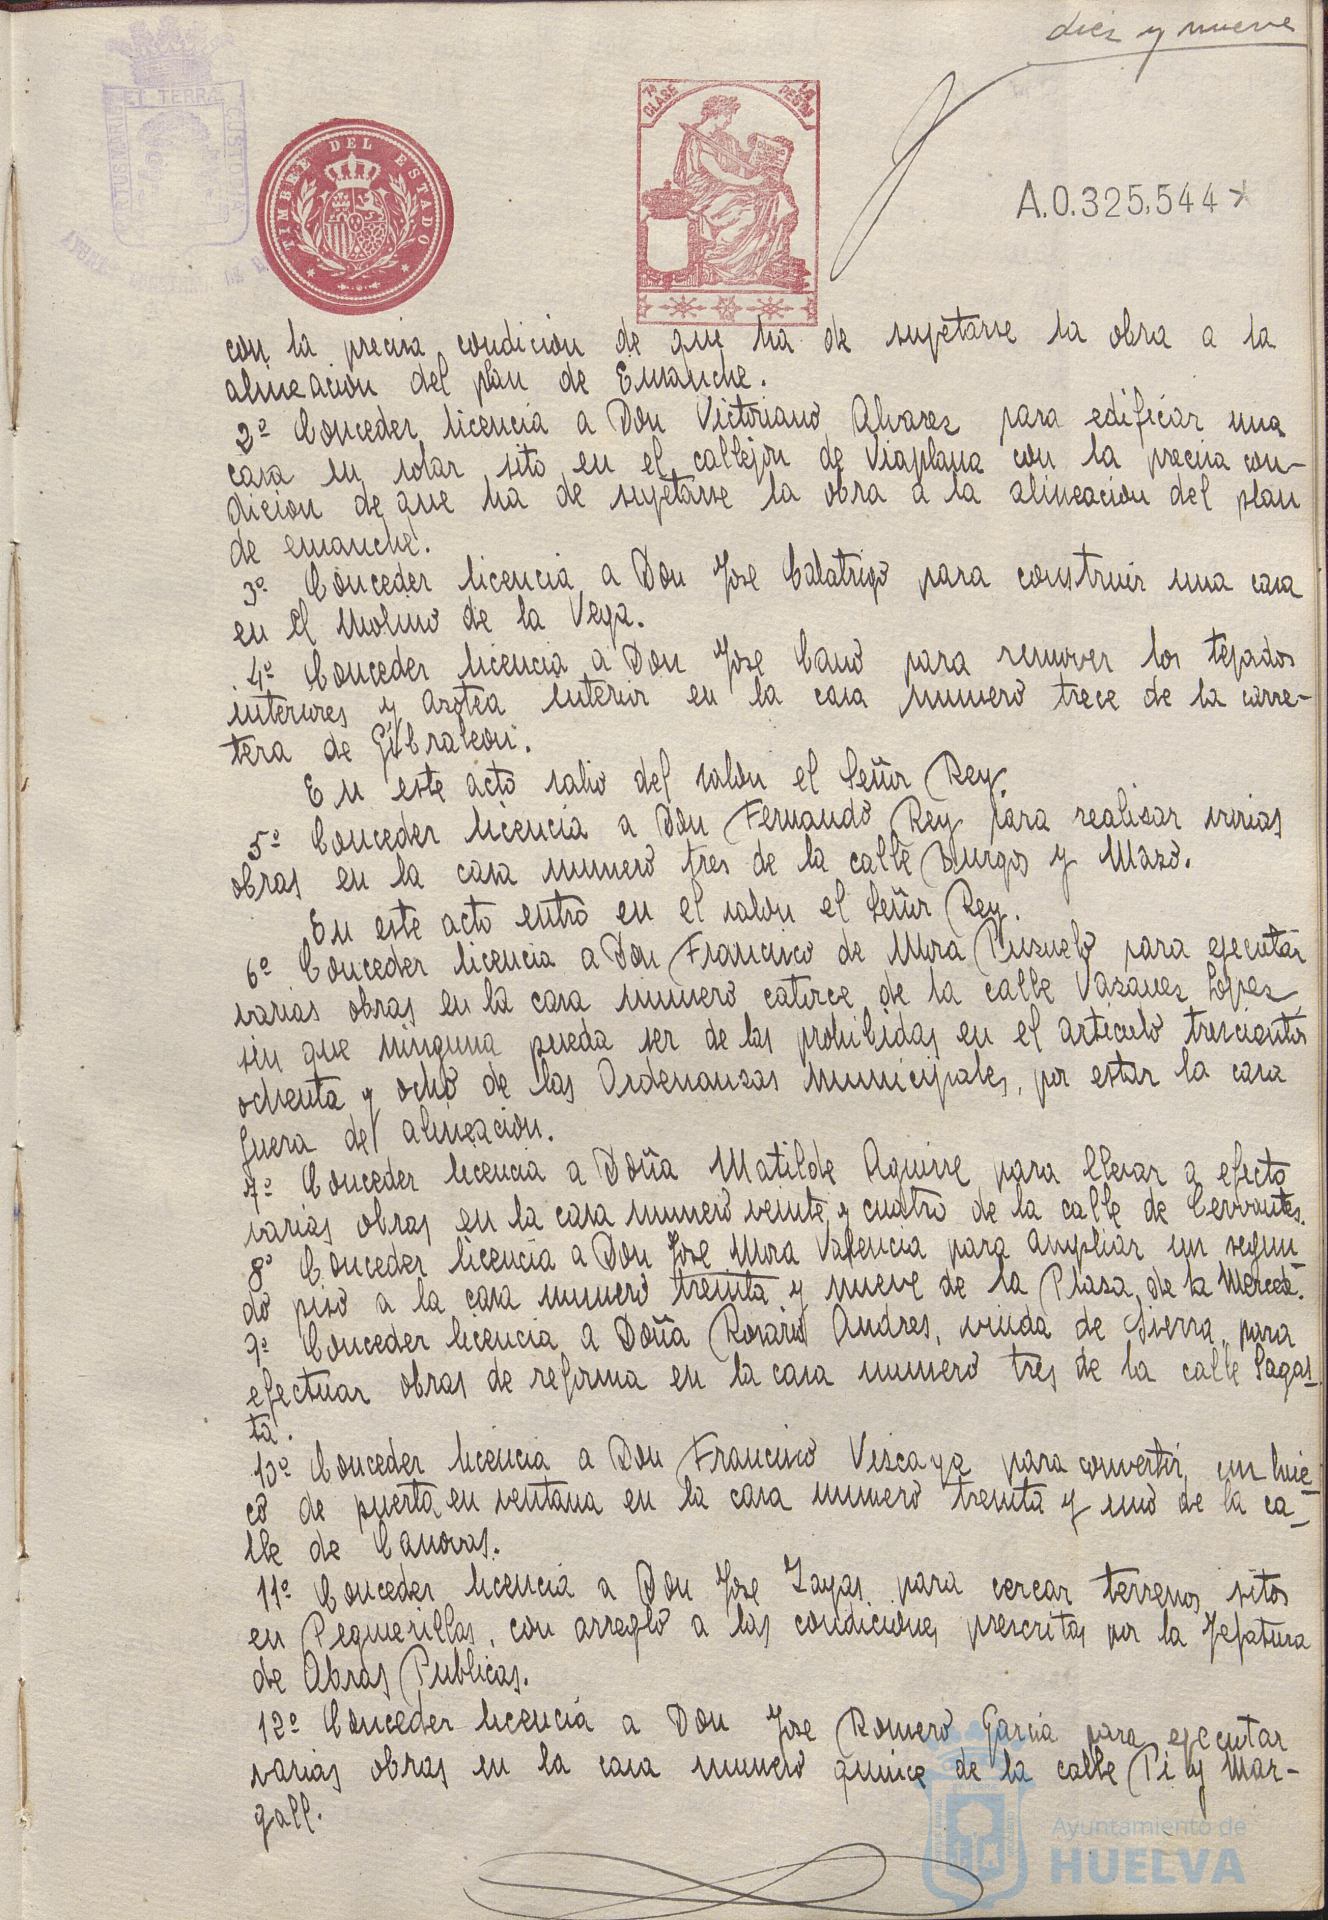 diez y nueve
ET TERRA
CUSTODIA
TIMBRE DEL ESTADO
7ª CLASE
A.0.325,544*
con la precisa condicion de que ha de sujetarse la obra a la
alineacion del plan de Ensanche.
2º Conceder licencia a Don Victoriano Alvarez para edificar una
casa en solar sito en el callejon de Viaplana con la precisa con-
dicion de que ha de sujetarse la obra a la alineacion del plan
de ensanche.
3º Conceder licencia a Don Jose Calatrigo para construir una casa
en el Molino de la Vega.
4º Conceder licencia a Don Jose Cano para remover los tejados
interiores y azotea interior en la casa numero trece de la carre-
tera de Gibraleon.
En este acto salio del salon el Señor Rey.
5º Conceder licencia a Don Fernando Rey para realizar varias
obras en la casa numero tres de la calle Burgos y Mazo.
En este acto entro en el salon el Señor Rey.
6º Conceder licencia a Don Francisco de Mora Puzuelo para ejecutar
varias obras en la casa numero catorce de la calle Vazquez Lopez,
sin que ninguna pueda ser de las prohibidas en el articulo trescientos
ochenta y ocho de las Ordenanzas Municipales, por estar la casa
fuera de alineacion.
7º Conceder licencia a Doña Matilde Aguirre para llevar a efecto
varias obras en la casa numero veinte y cuatro de la calle de Cervantes.
8º Conceder licencia a Don Jose Mora Valencia para ampliar un segun-
do piso a la casa numero treinta y nueve de la Plaza de la Merced.
9º Conceder licencia a Doña Rosario Andres, viuda de Sierra, para
efectuar obras de reforma en la casa numero tres de la calle Sagas-
ta.
10º Conceder licencia a Don Francisco Vizcaya para convertir un hue-
co de puerta en ventana en la casa numero treinta y uno de la ca-
lle de Canovas.
11º Conceder licencia a Don Jose Zayas para cercar terrenos sitos
en Peguerillas, con arreglo a las condiciones prescritas por la Jefatura
de Obras Publicas.
12º Conceder licencia a Don Jose Romero Garcia para ejecutar
varias obras en la casa numero quince de la calle Pi y Mar-
gall.
Ayuntamiento de
HUELVA